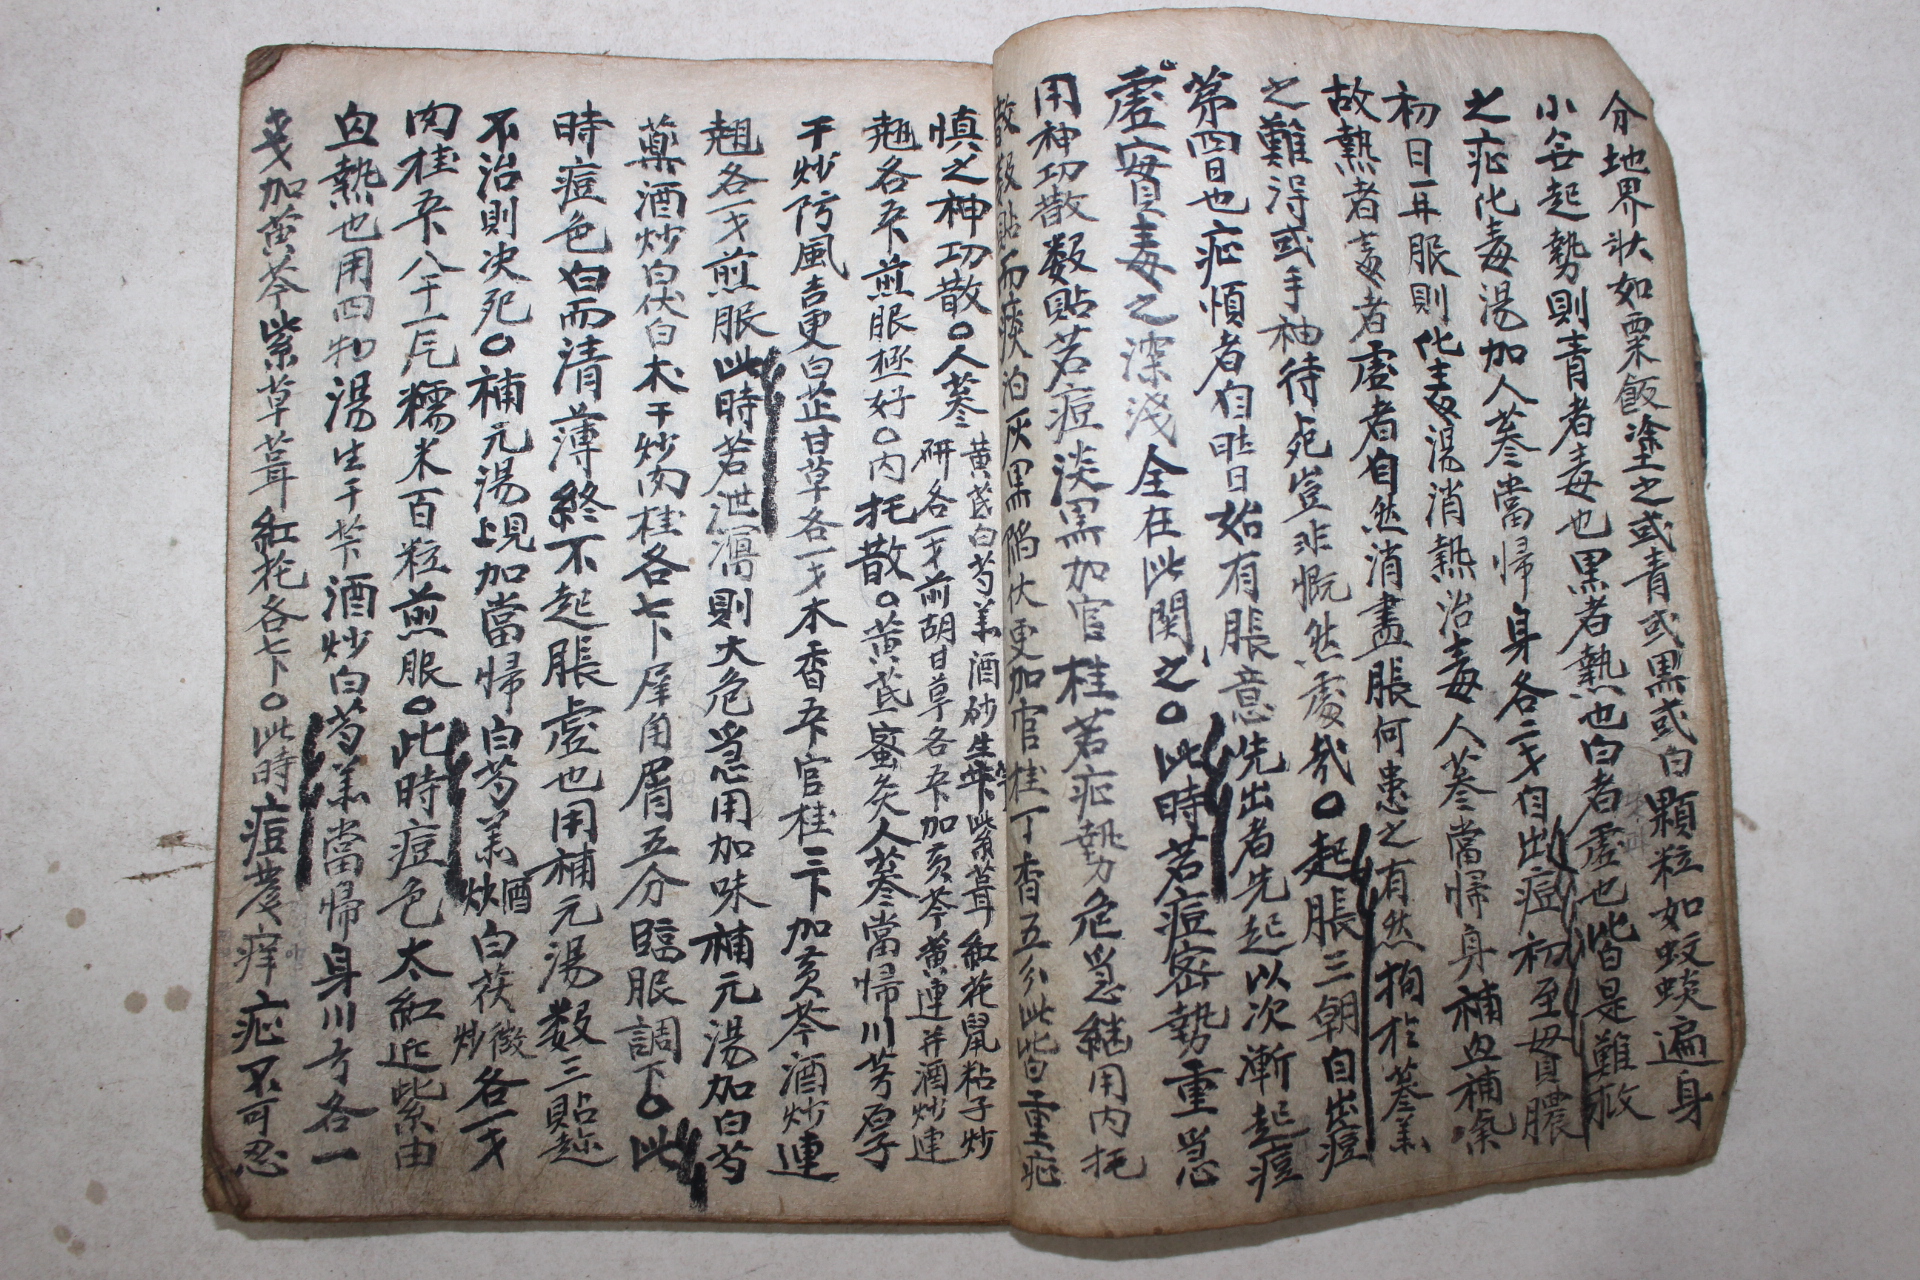 分地界狀如粟飯塗之或青或黑或白顆粒如蚊蚤遍身
小無起勢則青者毒也黑者熱也白者虛也此皆是難救
之症化毒湯加人蔘當歸身各二才自出痘初至貫膿
初日一再服則化毒湯消熱治毒人蔘當歸身補血補氣
故熱者毒者虛者自然消盡脹何患之有然拘於蔘羔
之難得或手袖待死豈非慨然處哉○起脹三朝自出痘
第四日也症順者自昨日始有脹意先出者先起以次漸起痘
虛實毒之深淺全在此関之○此時若痘密勢重急
用神功散数貼若痘淡黑加官桂若症勢危急継用內托
散数貼而痰泊灰黑陷伏更加官桂丁香五分此皆重症
慎之神功散○人蔘 黃芪白芍羔酒砂生芐紫葺紅花鼠粘子炒
研各一才前胡甘草各五卜加黃芩黃連幷酒炒連
翹各五卜煎服極好○內托散○黃芪蜜灸人蔘當歸川芎厚
干炒防風吉更白芷甘草各一才木香五卜官桂三卜加黃芩酒炒連
翹各一才煎服此時若泄瀉則大危急用加味補元湯加白芍
藥酒炒白伏白木干炒肉桂各七卜犀角屑五分臨服調下○此
時痘色白而清薄終不起脹虛也用補元湯数三貼
不治則決死○補元湯上見加當歸白芍羔酒炒白茯微炒各一才
肉桂五卜八干一片糯米百粒煎服○此時痘色太紅近紫由
血熱也用四物湯生干芐酒炒白芍羔當歸身川芎各一
戔加黃芩紫草葺紅花各七卜○此時痘處痒症不可忍